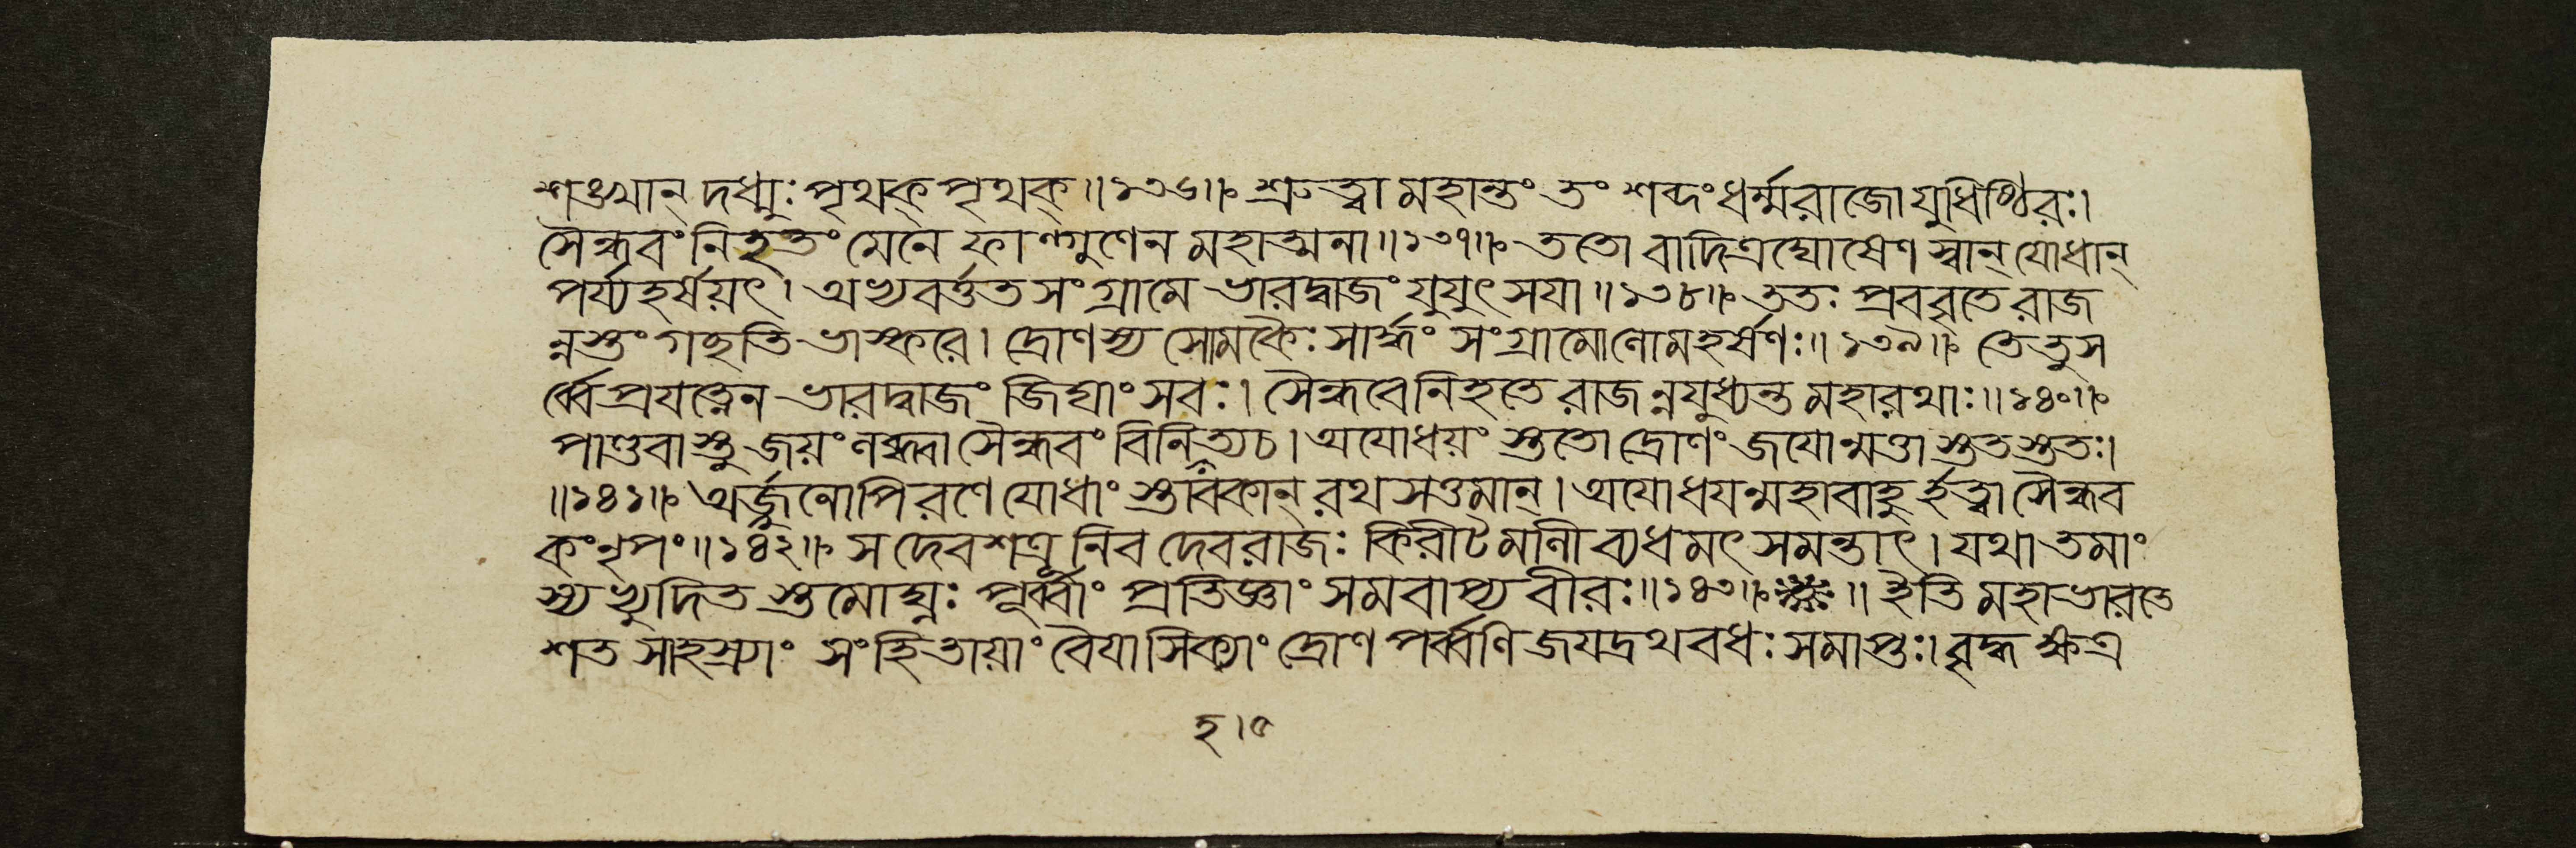 শঙ্খান্ দধ্মুঃ পৃথক্ পৃথক্॥১৩৬॥ শ্রুত্বা মহান্তং তং শব্দং ধর্ম্মরাজো যুধিষ্ঠিরঃ।
সৈন্ধবং নিহতং মেনে ফাল্গুণেন মহাত্মনা॥১৩৭॥ ততো বাদিত্রঘোষেণ স্বান্ যোধান্
পর্য্যহর্ষয়ৎ। অভ্যবর্ত্তত সংগ্রামে ভারদ্বাজং যুযুৎসযা॥১৩৮॥ ততঃ প্রববৃতে রাজ
ন্নস্তং গছতি ভাস্করে। দ্রোণস্য সোমকৈঃ সার্দ্ধং সংগ্রামোণোমহর্ষণঃ॥১৩৯॥ তেতু স
র্ব্বে প্রযত্নেন ভারদ্বাজং জিঘাংসবঃ। সৈন্ধবে নিহতে রাজন্নযুধ্যন্ত মহারথাঃ॥১৪০॥
পাণ্ডবাস্তু জয়ং লব্ধ্বা সৈন্ধবং বিনিহত্যচ। অযোধয়ংস্ততো দ্রোণং জযোন্মত্তাস্ততস্ততঃ।
॥১৪১॥ অর্জ্জুনোপি রণে যোধাংস্তাবকান্ রথসত্তমান্। অযোধযন্মহাবাহুর্হত্বা সৈন্ধব
কং নৃপং॥১৪২॥ স দেবশত্রূনিব দেবরাজঃ কিরীটমালী ব্যধমৎ সমন্তাৎ। যথা তমাং
স্যভ্যুদিতস্তমোঘ্নঃ পূর্ব্বাং প্রতিজ্ঞাং সমবাপ্য বীরঃ॥১৪৩॥ ॥ ইতি মহাভারতে
শত সাহস্র্যাং সংহিতায়াং বৈযাসিক্যাং দ্রোণ পর্ব্বণি জযদ্রথবধঃ সমাপ্তঃ। বৃদ্ধ ক্ষত্র